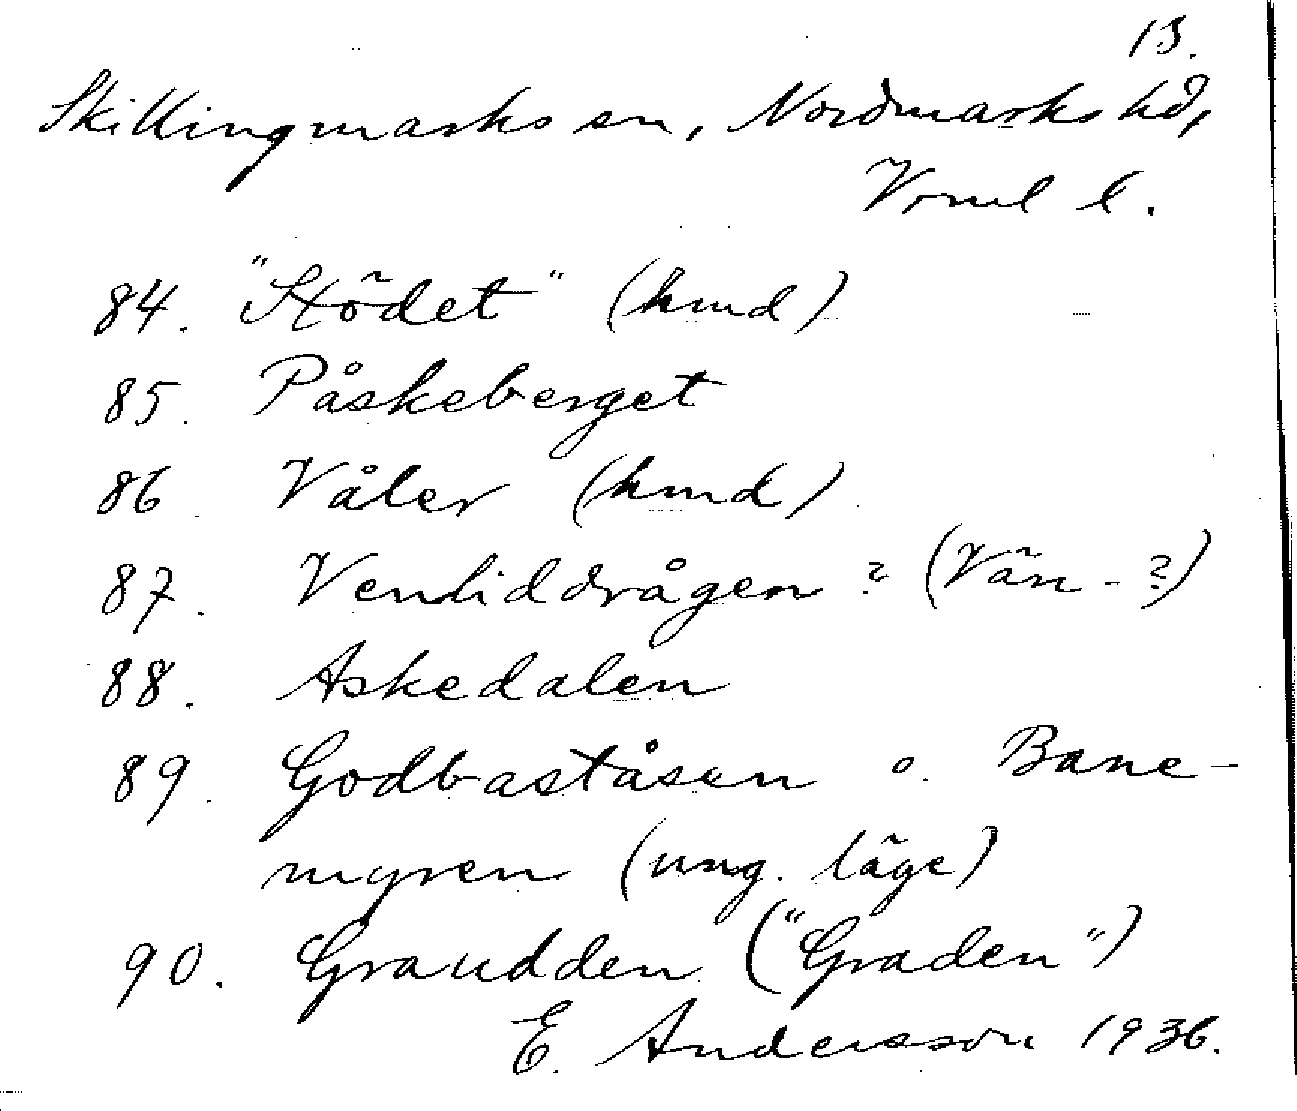 13.
Skillingmarks sn, Nordmarks hd,
Vrml l.
84. "Stödet" (hmd)
85. Påskeberget
86. Våler (hmd)
87. Venliddrågen? (Vän-?)
88. Askedalen
89. Godbaståsen o. Bane-
myren (ung. läge)
90. Graudden ("Graden")
E. Andersson 1936.